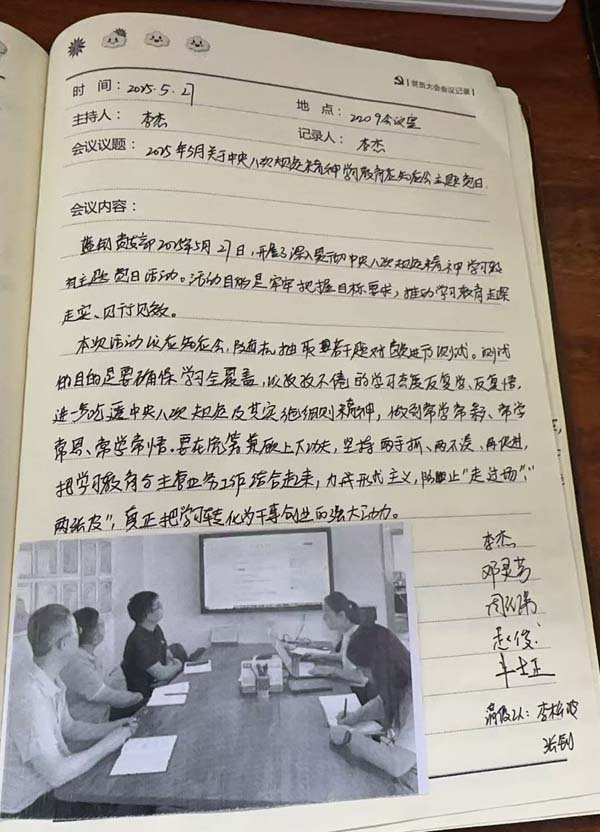 党员大会会议记录
时 间：2025.5.27
地 点：2209会议室
主持人：李杰
记录人：李杰
会议议题：2025年5月关于中央八次规定精神学习教育应知应会主题党日
会议内容：
党支部2025年5月27日，开展了深入贯彻中央八次规定精神学习教
育主题党日活动。活动目的是牢牢把握目标要求，推动学习教育走深
走实、见行见效。
本次活动以应知应会，随机抽取若干题对党员进行测试。测试
的目的是要确保学习全覆盖，以孜孜不倦的学习态度反复学、反复悟，
进一步吃透中央八次规定及其实施细则精神，做到常学常新、常学
常思、常学常悟。要在充筹兼顾上下功夫，坚持两手抓、两不误、两促进，
把学习教育与主营业务工作结合起来，力戒形式主义，防止"走过场"、"
两张皮"，真正把学习转化为干事创业的强大动力。
李杰
赵俊